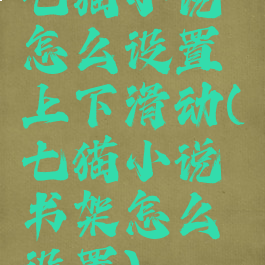 七猫小说
怎么设置
上下滑动(
七猫小说
书架怎么
设置)